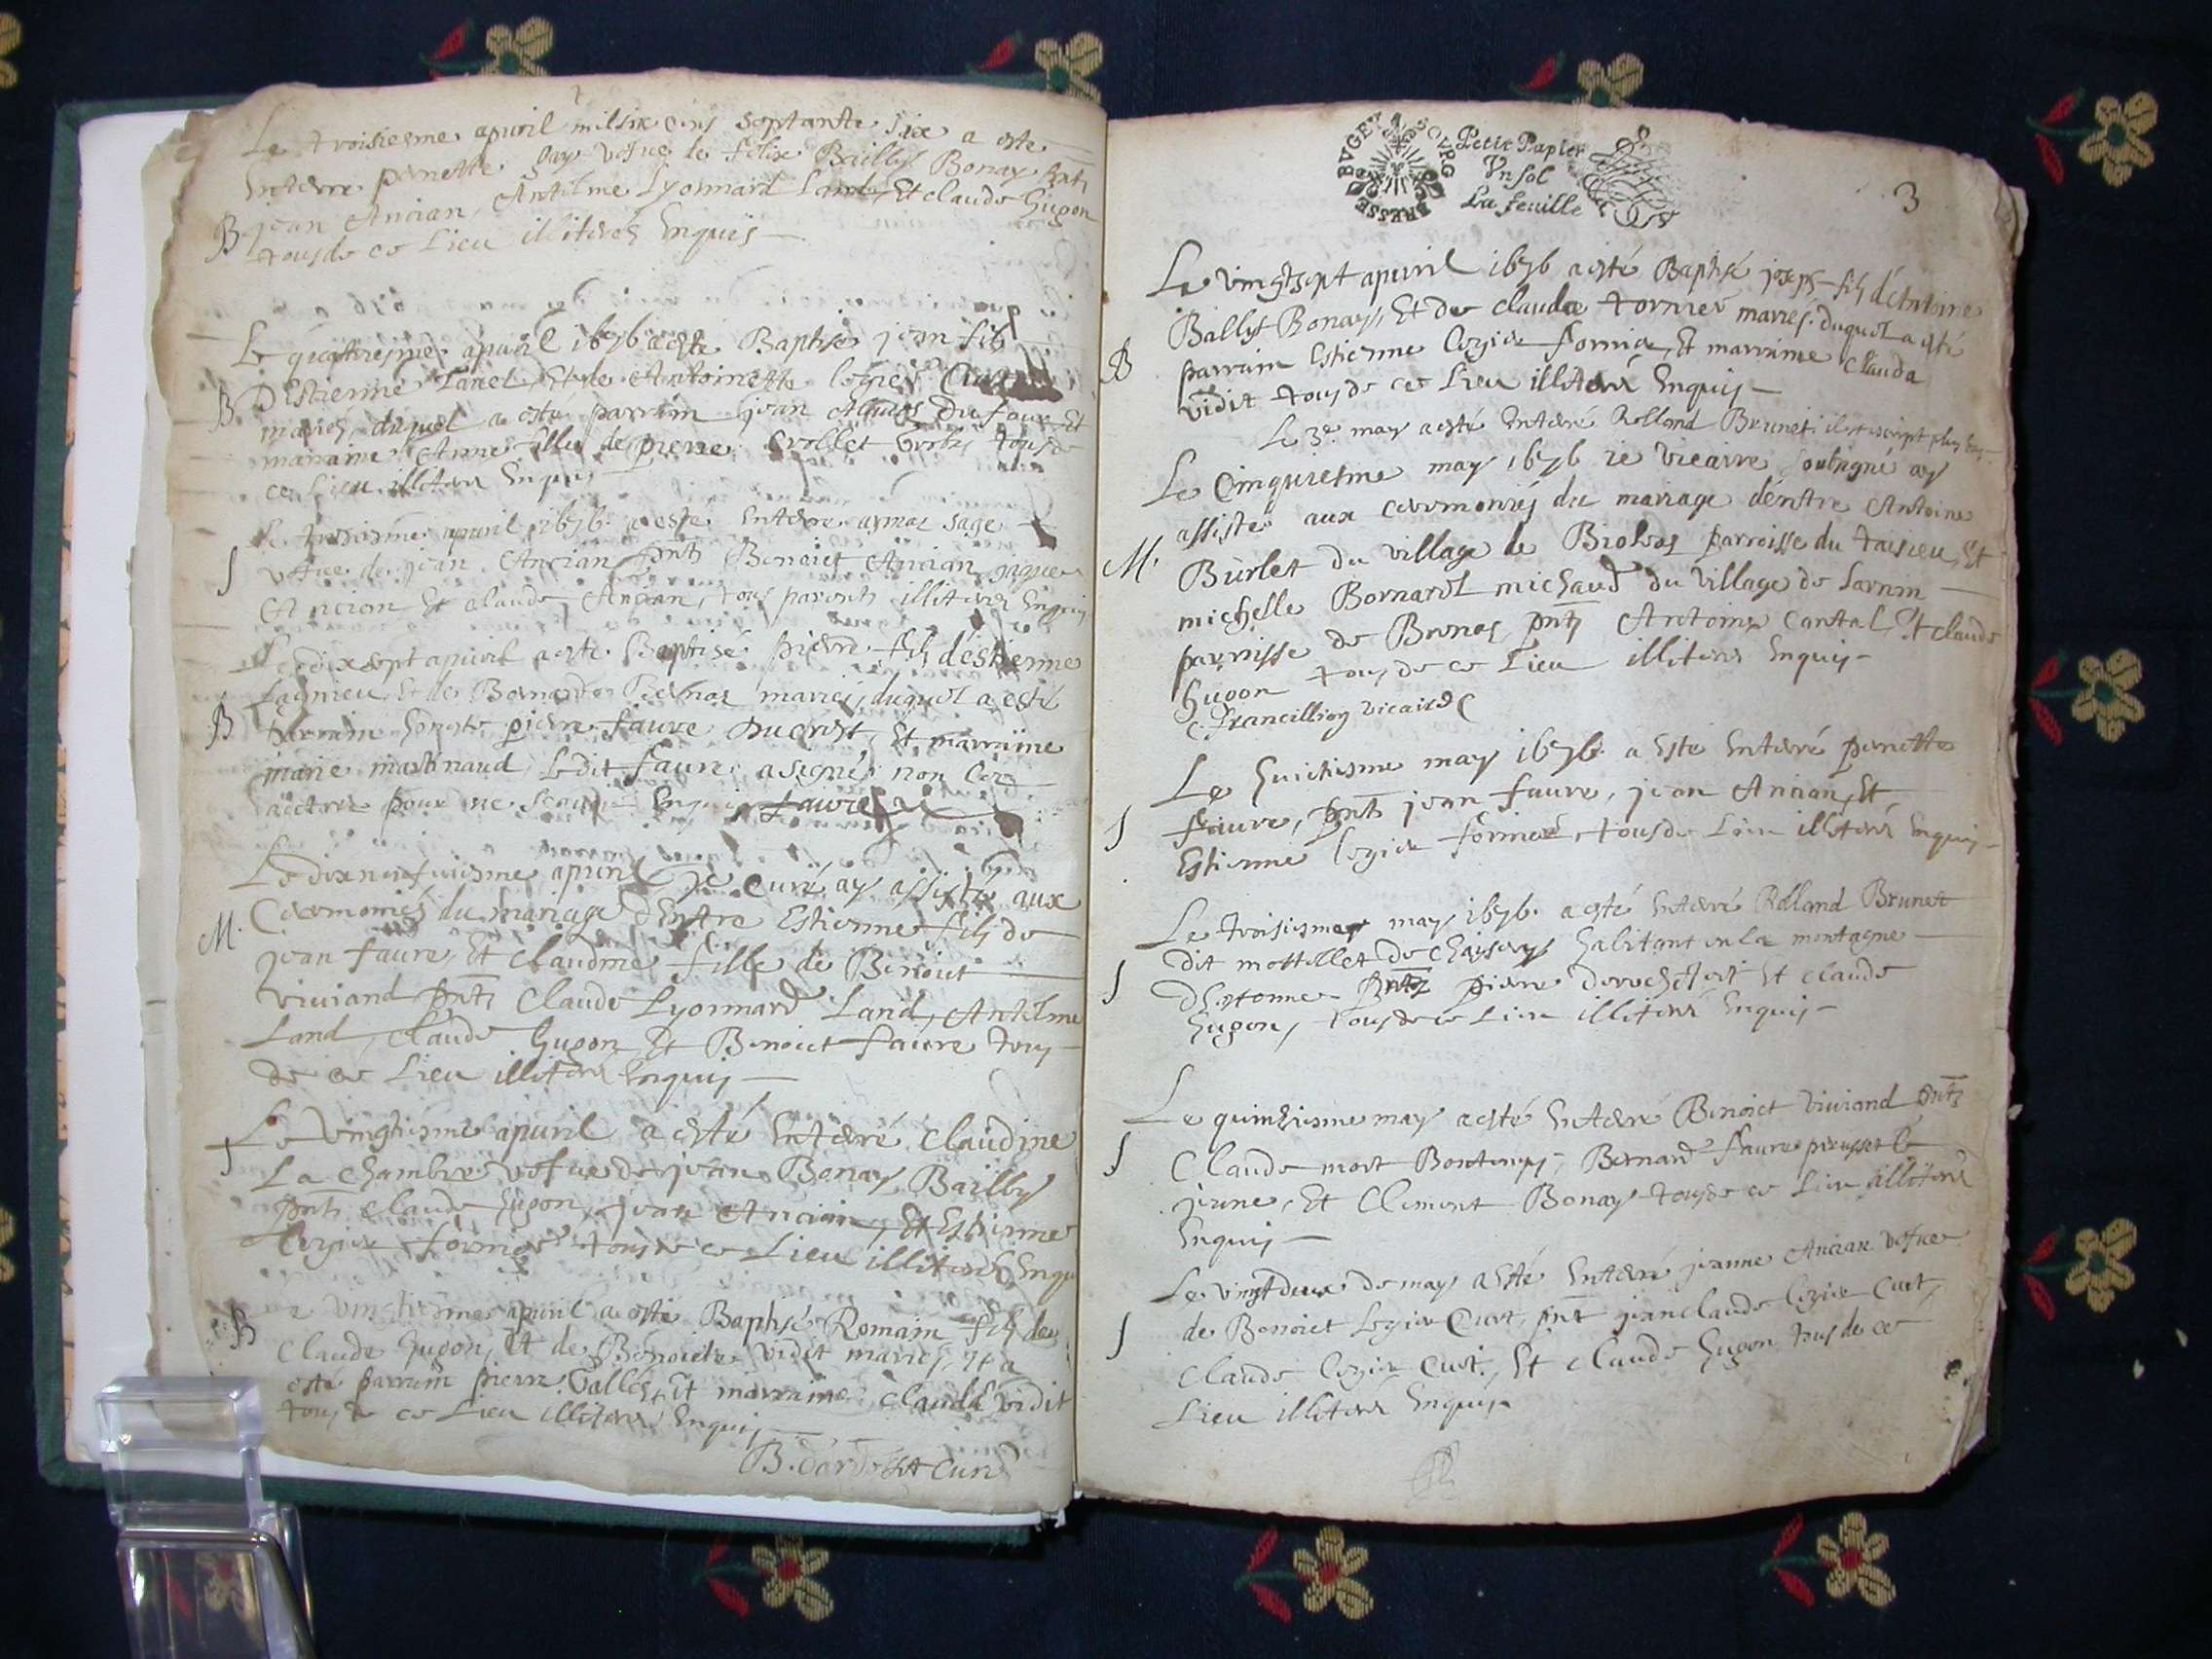 Le troisiesme apuril mil six cens septante six a este
enterre penette gay vefue de felix Bailly Bonay pnts
B jean Ancian, Antelme Lyonnard Land, Et claude hugon
tous de ce Lieu illiterés Enquis
Le quatriesme apuril 1676 a este Baptisé jean fils
B D'Estienne Tanet, Et de Antoinette
mariés, duquel a esté parrain jean du four Et
marraine Anne fille de pierre Crollet tous de
ce Lieu illiteré Enquis
Le troisiesme apuril 1676 a esté enterre aymaz sage
S vefue de jean Ancian pnts Benoict Ancian jaque
Ancian Et claude Ancian, tous parents illiterés Enquis
Le dix sept apuril a esté Baptisé pierre fils d'éstienne
fagnieu Et de Bernarde Bernaz mariés, duquel a esté
B parrain honeste pierre faure Ducrest, Et marraine
marie martinaud, Ledit faure a signé non
pour ne scauoir Enquis faure
Le dixneufuiesme apuril je Curé ay assisté aux
M. Ceremoniés du mariage d'Entre Estienne fils de
jean faure, Et claudine fille de Benoict
viuiand pnts claude Lyonnard Land, Antelme
Land, claude hugon Et Benoict faure tous
de ce Lieu illiterés Enquis
Le vingtiesme apuril a esté Enterré claudine
S La chambre vefue de jean Bonay Bailly
pnts claude hugon, jean Ancian, Et Estienne
Cozier fornier tous de ce Lieu illiterés Enqu
B e vingtiesme apuril a esté Baptisé Romain fils de
claude hugon, Et de Benoicte vidit mariés, Et a
esté parrain pierre Vallés, Et marraine claude vidit
tous de ce Lieu illiterés Enquis
B. Curé
BRESSE BVGEY BOVRG
Petit Papier
Vn sol
La feuille
3
Le vingt sept apuril 1676 a esté Baptisé joseph fils d'éAntoine
Bally Bonay, Et de claudâ tornier mariés. duquel a esté
B parrain Estienne Cozier fornier, Et marraine Clauda
vidit tous de ce Lieu illiteré Enquis
Le 3e. may a esté Enterré Rolland Brunet. il est escript plus bas
Le Cinquiesme may 1676 ie vicaire soubsigné ay
assisté aux ceremoniés du mariage d'éntre Antoine
M. Burlet du village de Bioleaz parroisse du taisieu, Et
michelle Bornard michaud du village de Larnin
parroisse de Brenaz pnts Antoine Cantal, Et claude
hugon tous de ce Lieu illiterés Enquis
C. francillion vicaire
Le huictiesme may 1676 a este Enterré penette
S faure, pnts jean faure, jean Ancian, Et
Estienne Cozier fornier, tous de Lieu illiterés Enquis
Le troisiesme may 1676 a esté Enterré Rolland Brunet
dit mottellet de chaisery habitant en la montagne
S d'hotonne pnts pierre Et claude
hugon, tous de ce Lieu illiteré Enquis
Le quinziesme may a esté Enterré Benoict viuiand pnts
S Claude mort Bontemps, Bernard faure le
jeune, Et Clement Bonay tous de ce Lieu illiterés
Enquis
Le vingt deux de may a Esté Enterré jeanne Ancian vefue
S de Benoict Cozier Curt, pnt jean claude Cozier Curt,
Claude Cozier Curt, Et claude hugon tous de ce
Lieu illiteré Enquis